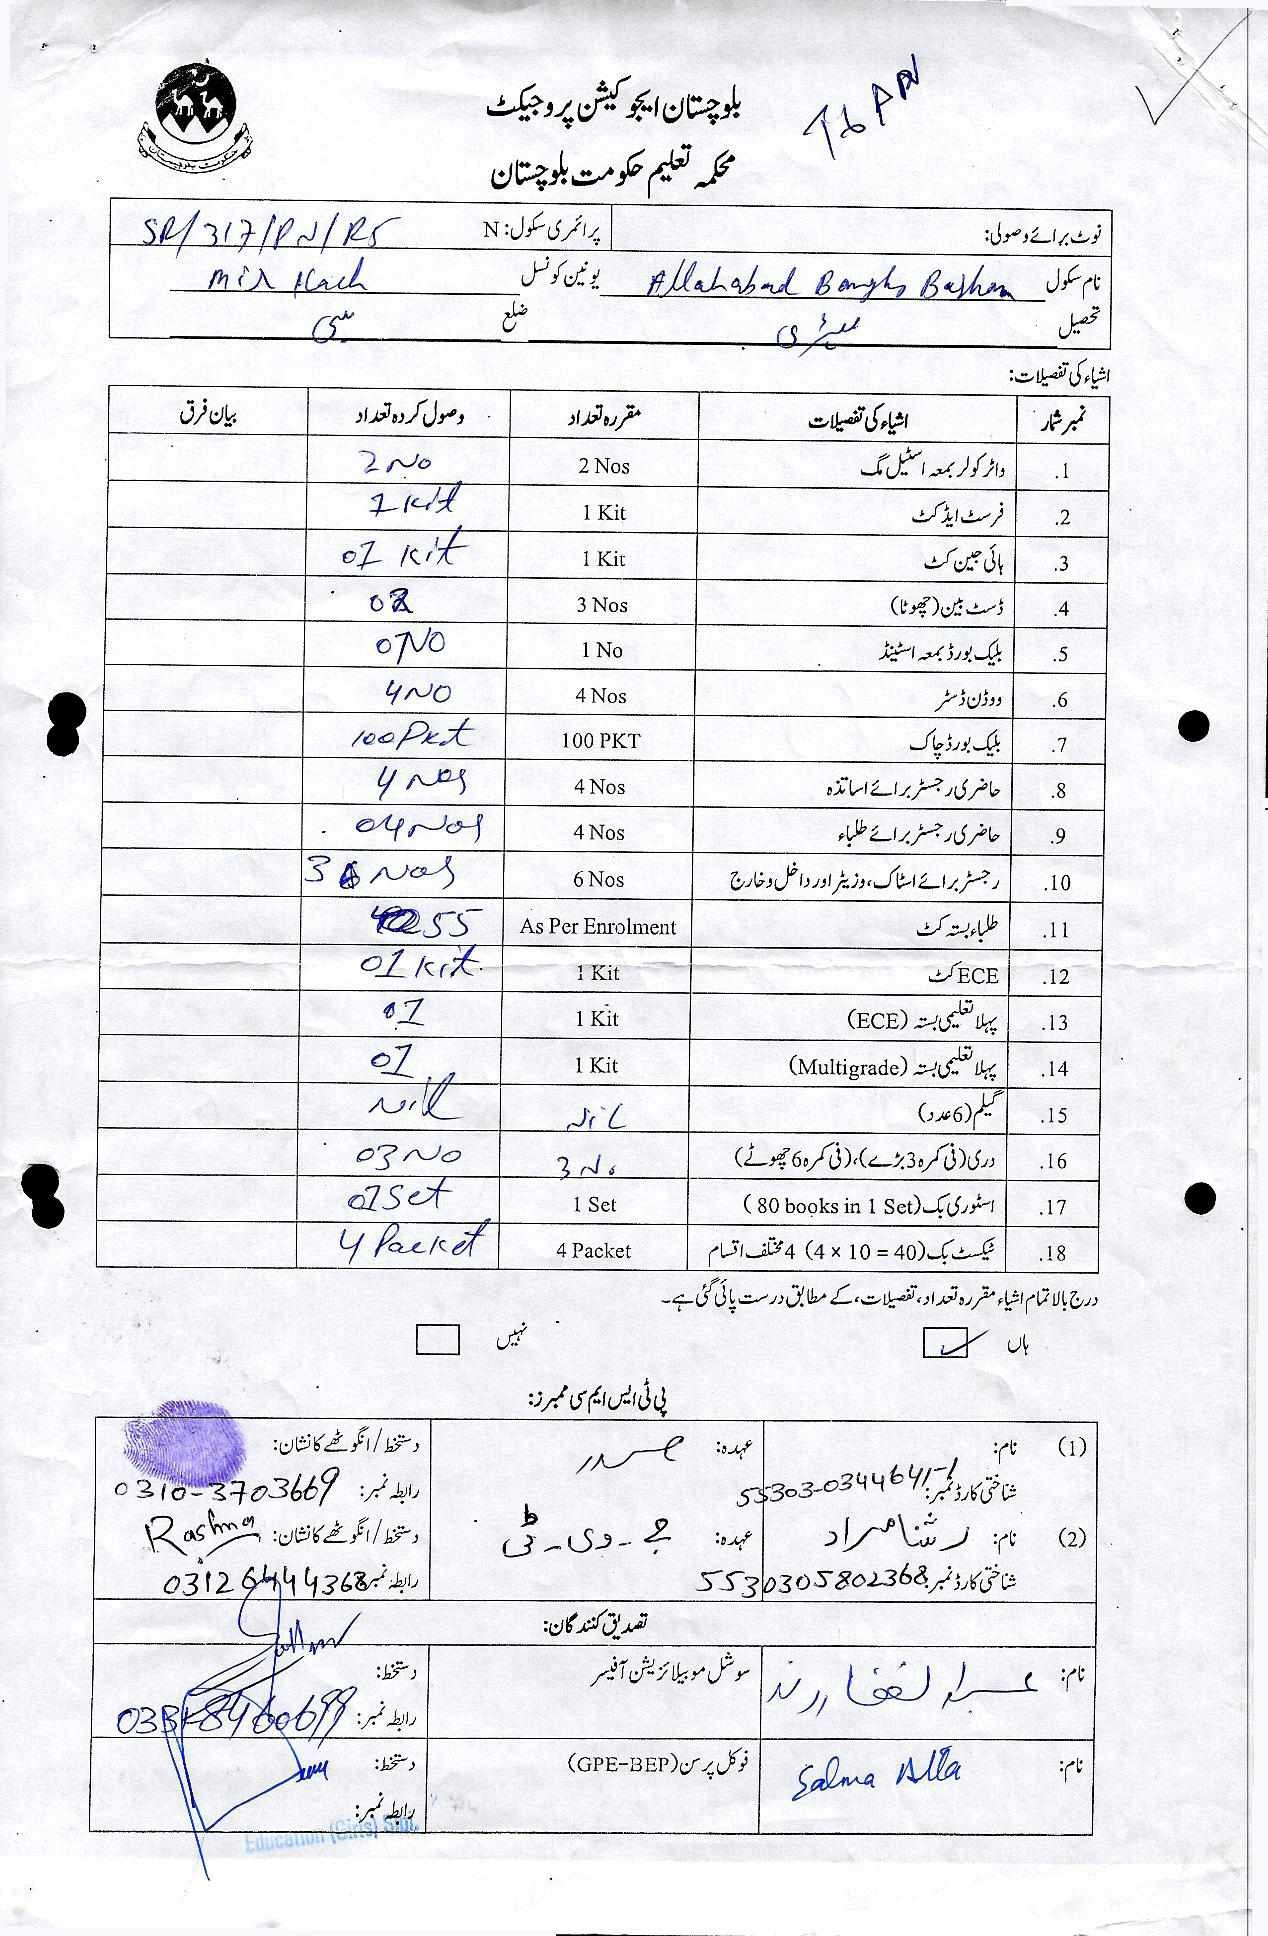 بلوچستان ایجوکیشن پروجیکٹ
محکمہ تعلیم حکومت بلوچستان
حکومت بلوچستان
نوٹ برائے وصولی: پرائمری سکول: N SR/317/PN/R5
نام سکول Allahabad یونین کونسل
تحصیل ضلع سبی
اشیاء کی تفصیلات:
نمبر شمار اشیاء کی تفصیلات مقررہ تعداد وصول کردہ تعداد بیان فرق
1. واٹر کولر بمعہ اسٹیل مگ 2 Nos 2 No
2. فرسٹ ایڈ کٹ 1 Kit 1 Kit
3. ہائی جین کٹ 1 Kit 01 Kit
4. ڈسٹ بین (چھوٹا) 3 Nos
5. بلیک بورڈ بمعہ اسٹینڈ 1 No 01 NO
6. ووڈن ڈسٹر 4 Nos 4 NO
7. بلیک بورڈ چاک 100 PKT 100 Pkt
8. حاضری رجسٹر برائے اساتذہ 4 Nos 4 Nos
9. حاضری رجسٹر برائے طلباء 4 Nos 04 Nos
10. رجسٹر برائے اسٹاک، وزیٹر اور داخل و خارج 6 Nos 3 Nos
11. طلباء بستہ کٹ As Per Enrolment 55
12. ECE کٹ 1 Kit 01 Kit
13. پہلا تعلیمی بستہ (ECE) 1 Kit 01
14. پہلا تعلیمی بستہ (Multigrade) 1 Kit 01
15. گیلم (6 عدد) Nil Nill
16. دری (فی کمرہ 3 بڑے)، (فی کمرہ 6 چھوٹے) 3 No 03 No
17. اسٹوری بک (80 books in 1 Set) 1 Set 01 Set
18. ٹیکسٹ بک (4 × 10 = 40) 4 مختلف اقسام 4 Packet 4 Packet
درج بالا تمام اشیاء مقررہ تعداد، تفصیلات، کے مطابق درست پائی گئی ہے۔
ہاں نہیں
پی ٹی ایس ایم سی ممبرز:
(1) نام: عہدہ: صدر دستخط/انگوٹھے کا نشان:
شناختی کارڈ نمبر: 55303-0344641-1 رابطہ نمبر: 0310-3703669
(2) نام: رشنا مراد عہدہ: جے۔وی۔ٹی دستخط/انگوٹھے کا نشان: Rashna
شناختی کارڈ نمبر: 5530305802368 رابطہ نمبر: 03126444368
تصدیق کنندگان:
نام: عبدالغفار رند سوشل موبیلائزیشن آفیسر دستخط:
رابطہ نمبر:
نام: Salma فوکل پرسن (GPE-BEP) دستخط:
رابطہ نمبر:
Education (Girls) Sibi.